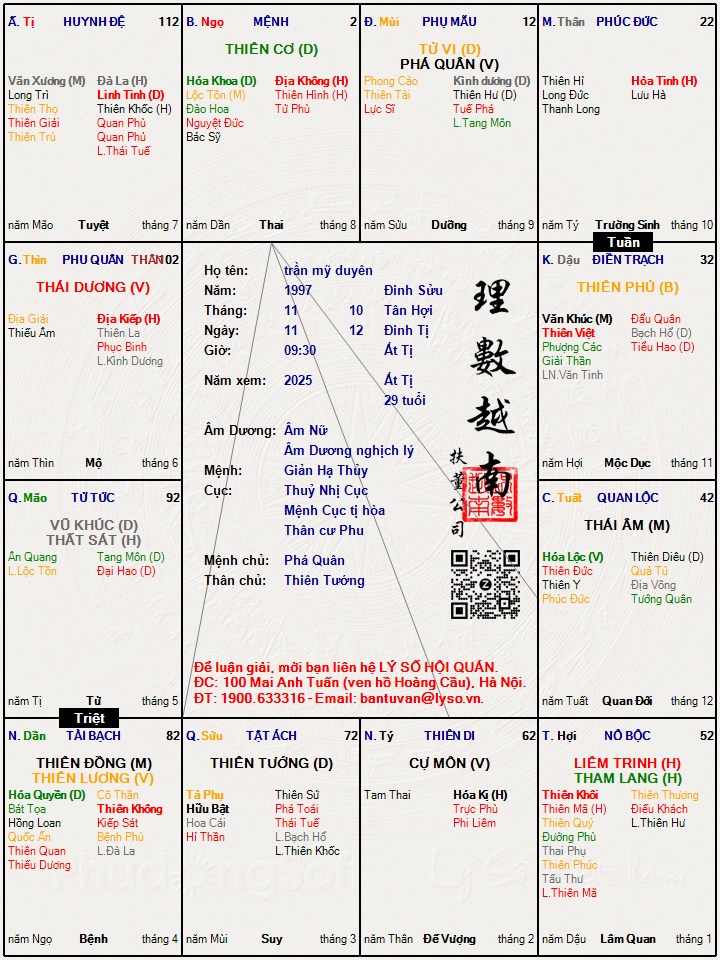 Ã. Tị HUYNH ĐỆ 112
Văn Xương (M) Đà La (H)
Long Trì Linh Tinh (D)
Thiên Thọ Thiên Khốc (H)
Thiên Giải Quan Phù
Thiên Trù Quan Phủ
L.Thái Tuế
năm Mão Tuyệt tháng 7
B. Ngọ MỆNH 2
THIÊN CƠ (D)
Hóa Khoa (D) Địa Không (H)
Lộc Tồn (M) Thiên Hình (H)
Đào Hoa Tử Phù
Nguyệt Đức
Bác Sỹ
năm Dần Thai tháng 8
Đ. Mùi PHỤ MẪU 12
TỬ VI (D)
PHÁ QUÂN (V)
Phong Cáo Kình dương (D)
Thiên Tài Thiên Hư (D)
Lực Sĩ Tuế Phá
L.Tang Môn
năm Sửu Dưỡng tháng 9
M. Thân PHÚC ĐỨC 22
Thiên Hỉ Hỏa Tinh (H)
Long Đức Lưu Hà
Thanh Long
năm Tý Trường Sinh tháng 10
Tuần
G. Thìn PHU QUÂN THÂN 102
THÁI DƯƠNG (V)
Địa Giải Địa Kiếp (H)
Thiếu Âm Thiên La
Phục Binh
L.Kình Dương
năm Thìn Mộ tháng 6
Họ tên: trần mỹ duyên
Năm: 1997 Đinh Sửu
Tháng: 11 10 Tân Hợi
Ngày: 11 12 Đinh Tị
Giờ: 09:30 Ất Tị
Năm xem: 2025 Ất Tị
29 tuổi
Âm Dương: Âm Nữ
Âm Dương nghịch lý
Mệnh: Giản Hạ Thủy
Cục: Thuỷ Nhị Cục
Mệnh Cục tị hòa
Thân cư Phu
Mệnh chủ: Phá Quân
Thân chủ: Thiên Tướng
理數越南
扶董公司
Để luận giải, mời bạn liên hệ LÝ SỐ HỘI QUÁN.
ĐC: 100 Mai Anh Tuấn (ven hồ Hoàng Cầu), Hà Nội.
ĐT: 1900.633316 - Email: bantuvan@lyso.vn.
K. Dậu ĐIỀN TRẠCH 32
THIÊN PHỦ (B)
Văn Khúc (M) Đẩu Quân
Thiên Việt Bạch Hổ (D)
Phượng Các Tiểu Hao (D)
Giải Thần
LN.Văn Tinh
năm Hợi Mộc Dục tháng 11
Q. Mão TỬ TỨC 92
VŨ KHÚC (D)
THẤT SÁT (H)
Ân Quang Tang Môn (D)
L.Lộc Tồn Đại Hao (D)
năm Tị Tử tháng 5
Triệt
C. Tuất QUAN LỘC 42
THÁI ÂM (M)
Hóa Lộc (V) Thiên Diêu (D)
Thiên Đức Quả Tú
Thiên Y Địa Võng
Phúc Đức Tướng Quân
năm Tuất Quan Đới tháng 12
N. Dần TÀI BẠCH 82
THIÊN ĐỒNG (M)
THIÊN LƯƠNG (V)
Hóa Quyền (D) Cô Thần
Bát Tọa Thiên Không
Hồng Loan Kiếp Sát
Quốc Ấn Bệnh Phù
Thiên Quan L.Đà La
Thiếu Dương
năm Ngọ Bệnh tháng 4
Q. Sửu TẬT ÁCH 72
THIÊN TƯỚNG (D)
Tả Phụ Thiên Sứ
Hữu Bật Phá Toái
Hoa Cái Thái Tuế
Hỉ Thần L.Bạch Hổ
L.Thiên Khốc
năm Mùi Suy tháng 3
N. Tý THIÊN DI 62
CỰ MÔN (V)
Tam Thai Hóa Kị (H)
Trực Phù
Phi Liêm
năm Thân Đế Vượng tháng 2
T. Hợi NÔ BỘC 52
LIÊM TRINH (H)
THAM LANG (H)
Thiên Khôi Thiên Thương
Thiên Mã (H) Điếu Khách
Thiên Quý L.Thiên Hư
Đường Phù
Thai Phụ
Thiên Phúc
Tấu Thư
L.Thiên Mã
năm Dậu Lâm Quan tháng 1